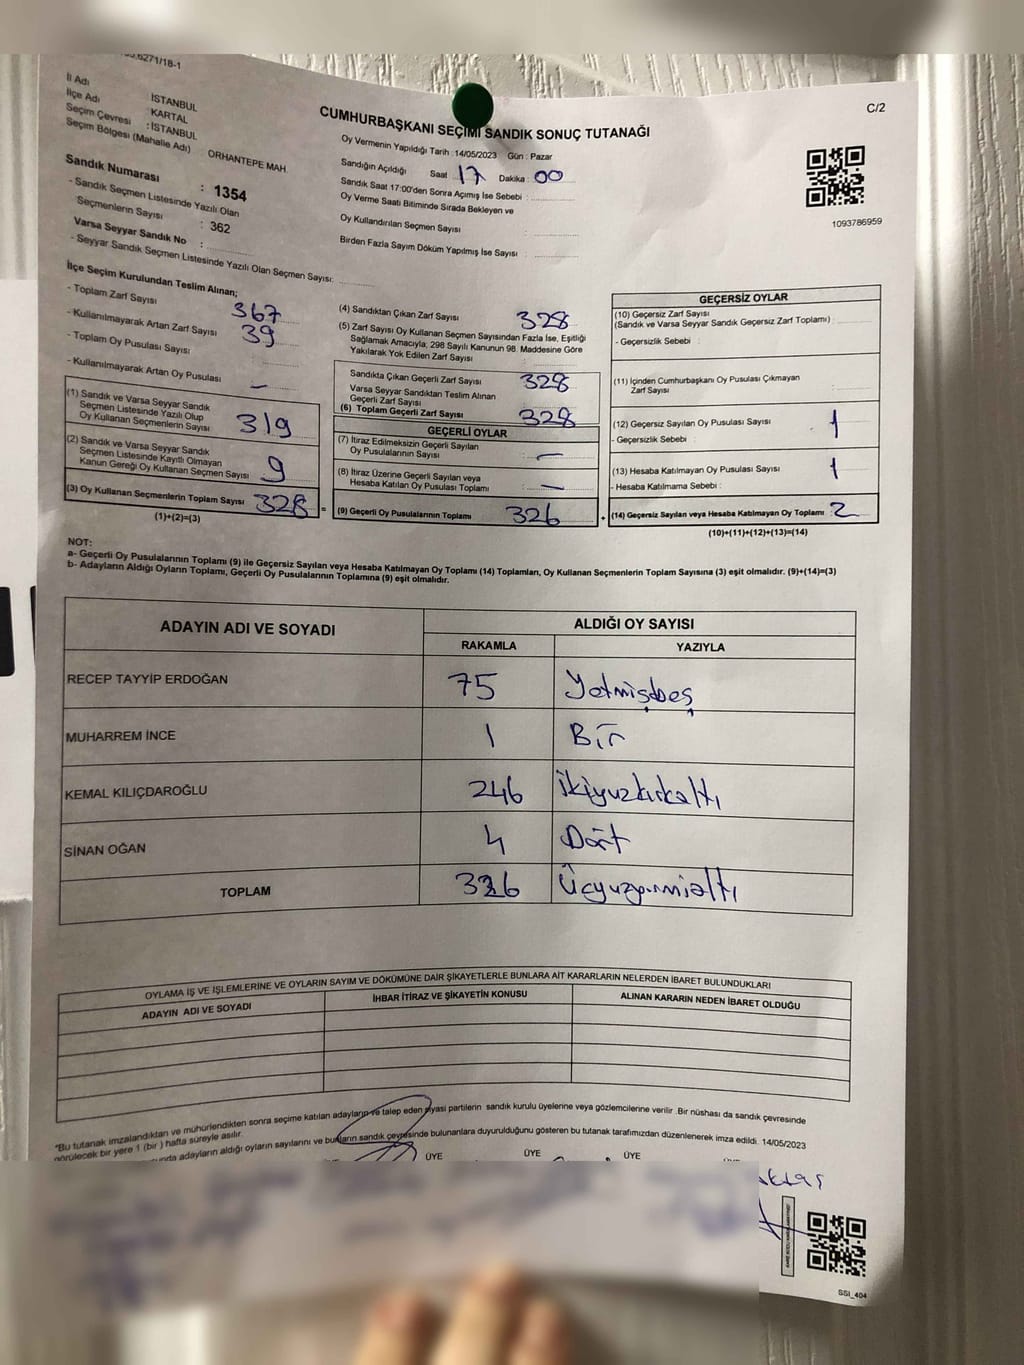 6271/18-1
İl Adı : İSTANBUL
İlçe Adı : KARTAL
Seçim Çevresi : İSTANBUL
Seçim Bölgesi (Mahalle Adı) ORHANTEPE MAH.
Sandık Numarası : 1354
- Sandık Seçmen Listesinde Yazılı Olan
Seçmenlerin Sayısı : 362
Varsa Seyyar Sandık No :
- Seyyar Sandık Seçmen Listesinde Yazılı Olan Seçmen Sayısı:
C/2
CUMHURBAŞKANI SEÇİMİ SANDIK SONUÇ TUTANAĞI
Oy Vermenin Yapıldığı Tarih : 14/05/2023 Gün : Pazar
Sandığın Açıldığı Saat 17 Dakika : 00
Sandık Saat 17:00'den Sonra Açımış İse Sebebi :
Oy Verme Saati Bitiminde Sırada Bekleyen ve
Oy Kullandırılan Seçmen Sayısı :
Birden Fazla Sayım Döküm Yapılmış İse Sayısı :
1093786959
İlçe Seçim Kurulundan Teslim Alınan;
- Toplam Zarf Sayısı 367
- Kullanılmayarak Artan Zarf Sayısı 39
- Toplam Oy Pusulası Sayısı
- Kullanılmayarak Artan Oy Pusulası —
(1) Sandık ve Varsa Seyyar Sandık
Seçmen Listesinde Yazılı Olup
Oy Kullanan Seçmenlerin Sayısı 319
(2) Sandık ve Varsa Seyyar Sandık
Seçmen Listesinde Kayıtlı Olmayan
Kanun Gereği Oy Kullanan Seçmen Sayısı 9
(3) Oy Kullanan Seçmenlerin Toplam Sayısı 328
(1)+(2)=(3)
(4) Sandıktan Çıkan Zarf Sayısı 328
(5) Zarf Sayısı Oy Kullanan Seçmen Sayısından Fazla İse, Eşitliği
Sağlamak Amacıyla; 298 Sayılı Kanunun 98. Maddesine Göre
Yakılarak Yok Edilen Zarf Sayısı :
Sandıkta Çıkan Geçerli Zarf Sayısı 328
Varsa Seyyar Sandıktan Teslim Alınan
Geçerli Zarf Sayısı
(6) Toplam Geçerli Zarf Sayısı 328
GEÇERLİ OYLAR
(7) İtiraz Edilmeksizin Geçerli Sayılan
Oy Pusulalarının Sayısı : —
(8) İtiraz Üzerine Geçerli Sayılan veya
Hesaba Katılan Oy Pusulası Toplamı : —
= (9) Geçerli Oy Pusulalarının Toplamı 326
GEÇERSİZ OYLAR
(10) Geçersiz Zarf Sayısı
(Sandık ve Varsa Seyyar Sandık Geçersiz Zarf Toplamı) :
- Geçersizlik Sebebi :
(11) İçinden Cumhurbaşkanı Oy Pusulası Çıkmayan
Zarf Sayısı :
(12) Geçersiz Sayılan Oy Pusulası Sayısı : 1
- Geçersizlik Sebebi :
(13) Hesaba Katılmayan Oy Pusulası Sayısı : 1
- Hesaba Katılmama Sebebi :
+ (14) Geçersiz Sayılan veya Hesaba Katılmayan Oy Toplamı : 2
(10)+(11)+(12)+(13)=(14)
NOT:
a- Geçerli Oy Pusulalarının Toplamı (9) ile Geçersiz Sayılan veya Hesaba Katılmayan Oy Toplamı (14) Toplamları, Oy Kullanan Seçmenlerin Toplam Sayısına (3) eşit olmalıdır. (9)+(14)=(3)
b- Adayların Aldığı Oyların Toplamı, Geçerli Oy Pusulalarının Toplamına (9) eşit olmalıdır.
ADAYIN ADI VE SOYADI ALDIĞI OY SAYISI
RAKAMLA YAZIYLA
RECEP TAYYİP ERDOĞAN 75 Yetmişbeş
MUHARREM İNCE 1 Bir
KEMAL KILIÇDAROĞLU 246 İkiyuzkırkaltı
SİNAN OĞAN 4 Dört
TOPLAM 326 Üçyuzyirmialtı
OYLAMA İŞ VE İŞLEMLERİNE VE OYLARIN SAYIM VE DÖKÜMÜNE DAİR ŞİKAYETLERLE BUNLARA AİT KARARLARIN NELERDEN İBARET BULUNDUKLARI
ADAYIN ADI VE SOYADI İHBAR İTİRAZ VE ŞİKAYETİN KONUSU ALINAN KARARIN NEDEN İBARET OLDUĞU
*Bu tutanak imzalandıktan ve mühürlendikten sonra seçime katılan adayların ve talep eden siyasi partilerin sandık kurulu üyelerine veya gözlemcilerine verilir. Bir nüshası da sandık çevresinde
görülecek bir yere 1 (bir ) hafta süreyle asılır.
adayların aldığı oyların sayılarını ve bunların sandık çevresinde bulunanlara duyurulduğunu gösteren bu tutanak tarafımızdan düzenlenerek imza edildi. 14/05/2023
ÜYE ÜYE ÜYE
SSI_404